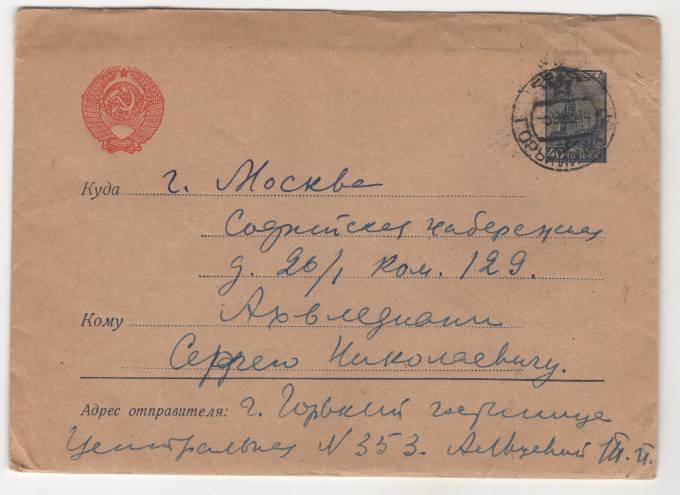 ГОРЬКИЙ
Куда г. Москва
Софийская набережная
д. 26/1 ком. 129.
Кому Ахвледиани
Сергею Николаевичу.
Адрес отправителя: г. Горький гостиница
Центральная N 353.